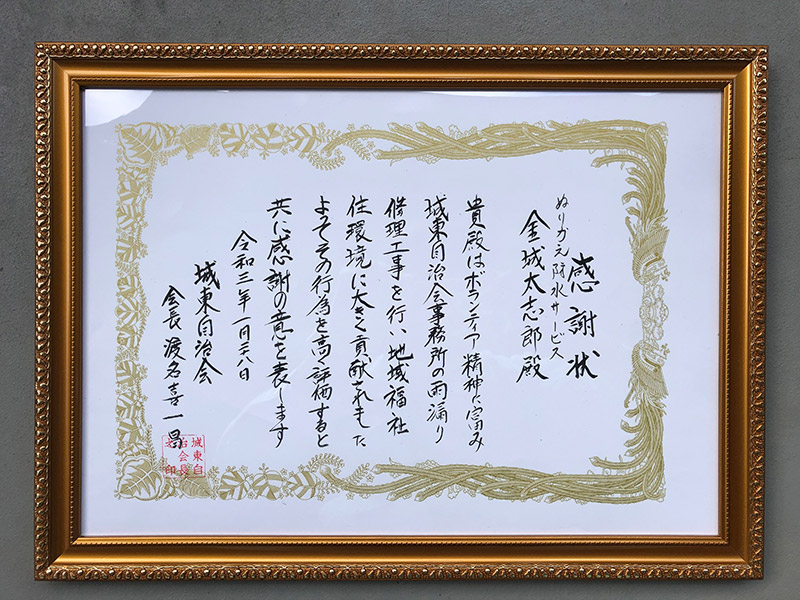 感謝状
ぬりかえ防水サービス
金城太志郎殿
貴殿はボランティア精神に富み
城東自治会事務所の雨漏り
修理工事を行い地域福祉
住環境に大きく貢献されました
よってその行為を高く評価すると
共に感謝の意を表します
令和三年一月二八日
城東自治会
会長 渡名喜一
城東自
治会長
印